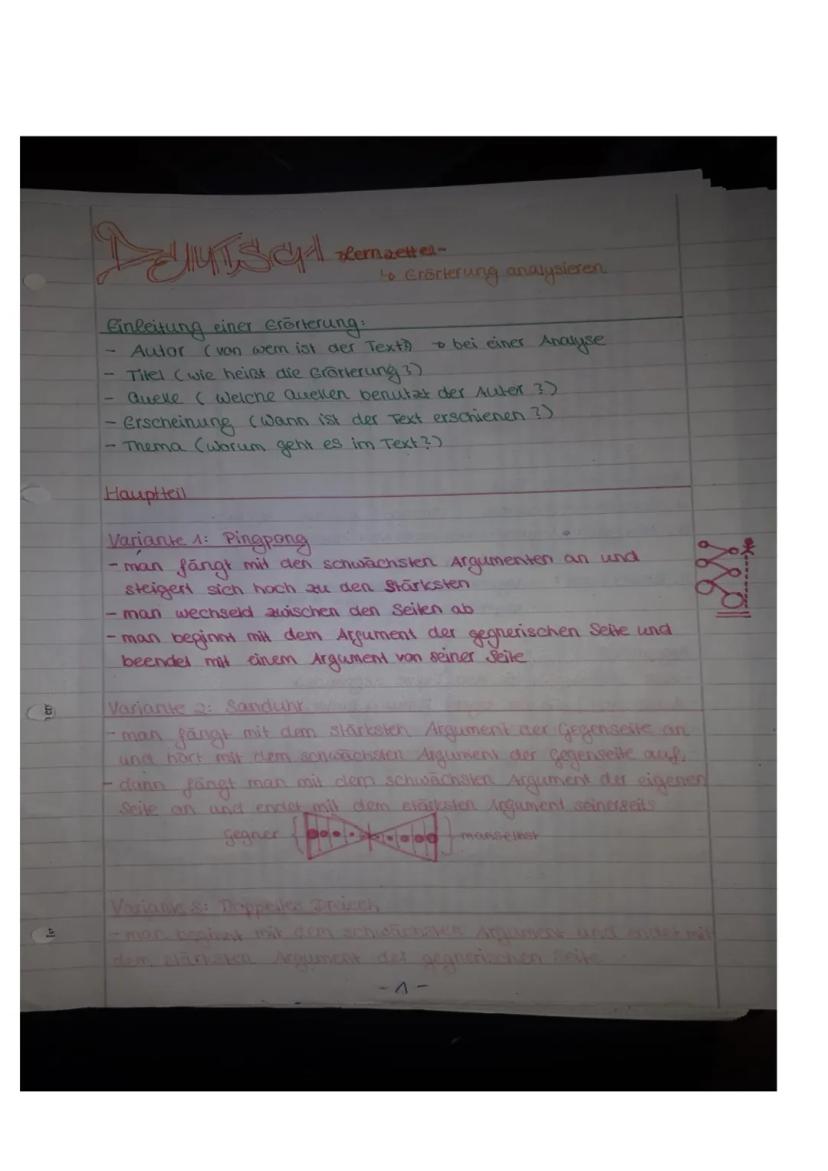 DEUTSCH -Lernzettel-
↳ Erörterung analysieren
Einleitung einer Erörterung:
- Autor (von wem ist der Text?) → bei einer Analyse
- Titel (wie heißt die Erörterung?)
- Quelle (Welche Quellen benutzt der Autor?)
- Erscheinung (Wann ist der Text erschienen?)
- Thema (Worum geht es im Text?)
Hauptteil
Variante 1: Pingpong
- man fängt mit den schwächsten Argumenten an und
steigert sich hoch zu den Stärksten
- man wechseld zwischen den Seiten ab
- man beginnt mit dem Argument der gegnerischen Seite und
beendet mit einem Argument von seiner Seite
Variante 2: Sanduhr
- man fängt mit dem stärksten Argument der Gegenseite an
und hört mit dem schwächsten Argument der Gegenseite auf,
- dann fängt man mit dem schwächsten Argument der eigenen
Seite an und endet mit dem stärksten Argument seinerseits
Gegner { } man selbst
Variante 3: Doppeltes Dreieck
- man beginnt mit dem schwächsten Argument und endet mit
dem stärksten Argument der gegnerischen Seite
- 1 -